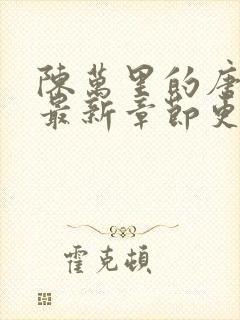 陳萬里的唐
最新章節更
霍克頓